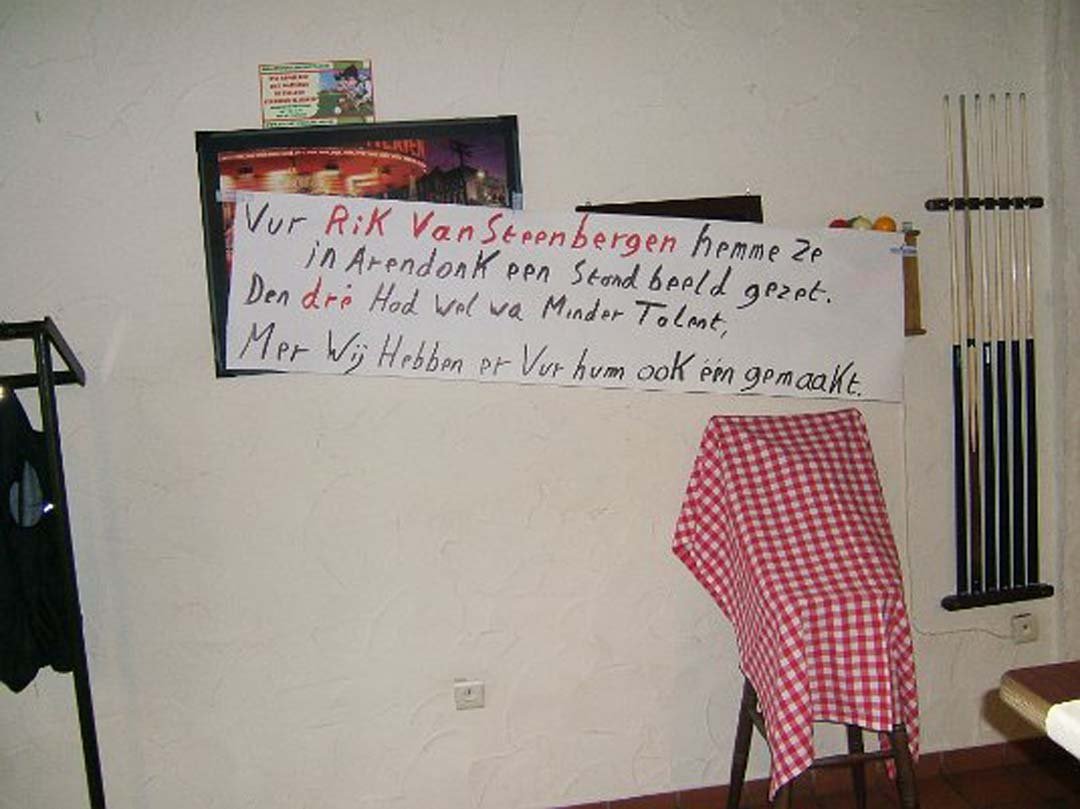 Vur RiK VanSteenbergen hemme ze
in ArendonK een Standbeeld gezet.
Den dré Had wel wa Minder Talent,
Mer Wij Hebben er Vur hum ooK één gemaaKt.